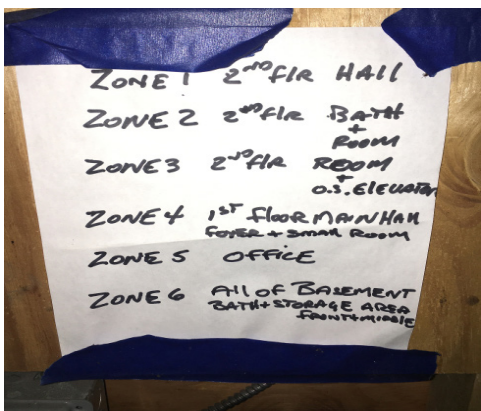 ZONE 1 2ND FLR HALL
ZONE 2 2ND FLR BATH
+
ROOM
ZONE 3 2ND FLR ROOM
+
O.S. ELEVATOR
ZONE 4 1ST FLOOR MAIN HALL
FOYER + SMALL ROOM
ZONE 5 OFFICE
ZONE 6 All OF BASEMENT
BATH + STORAGE AREA
FRONT + MIDDLE